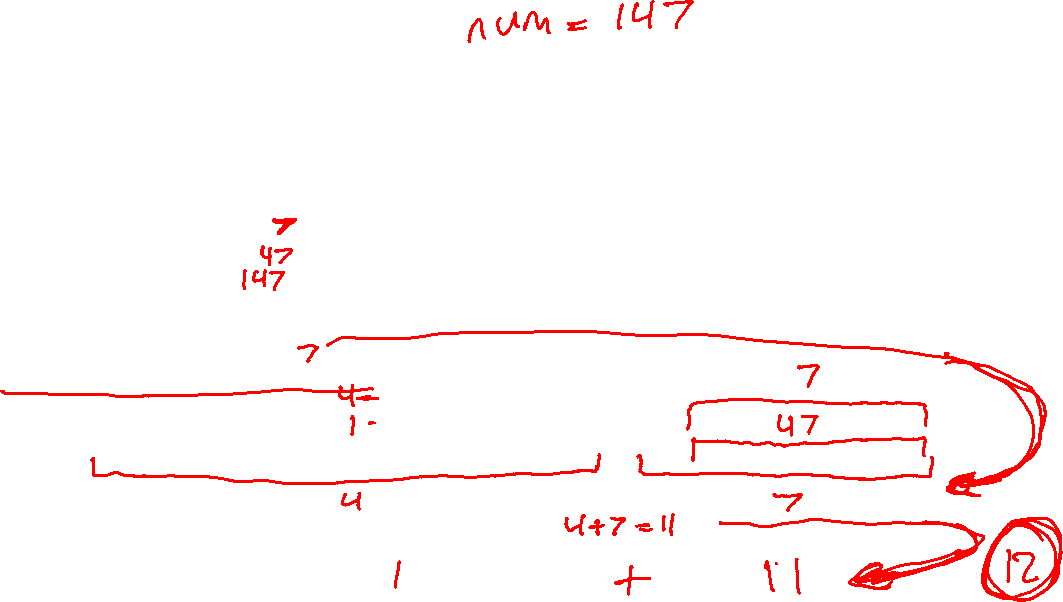 num = 147
7
47
147
7
7
4=
1 -
47
4
7
4+7=11
1 + 11
12